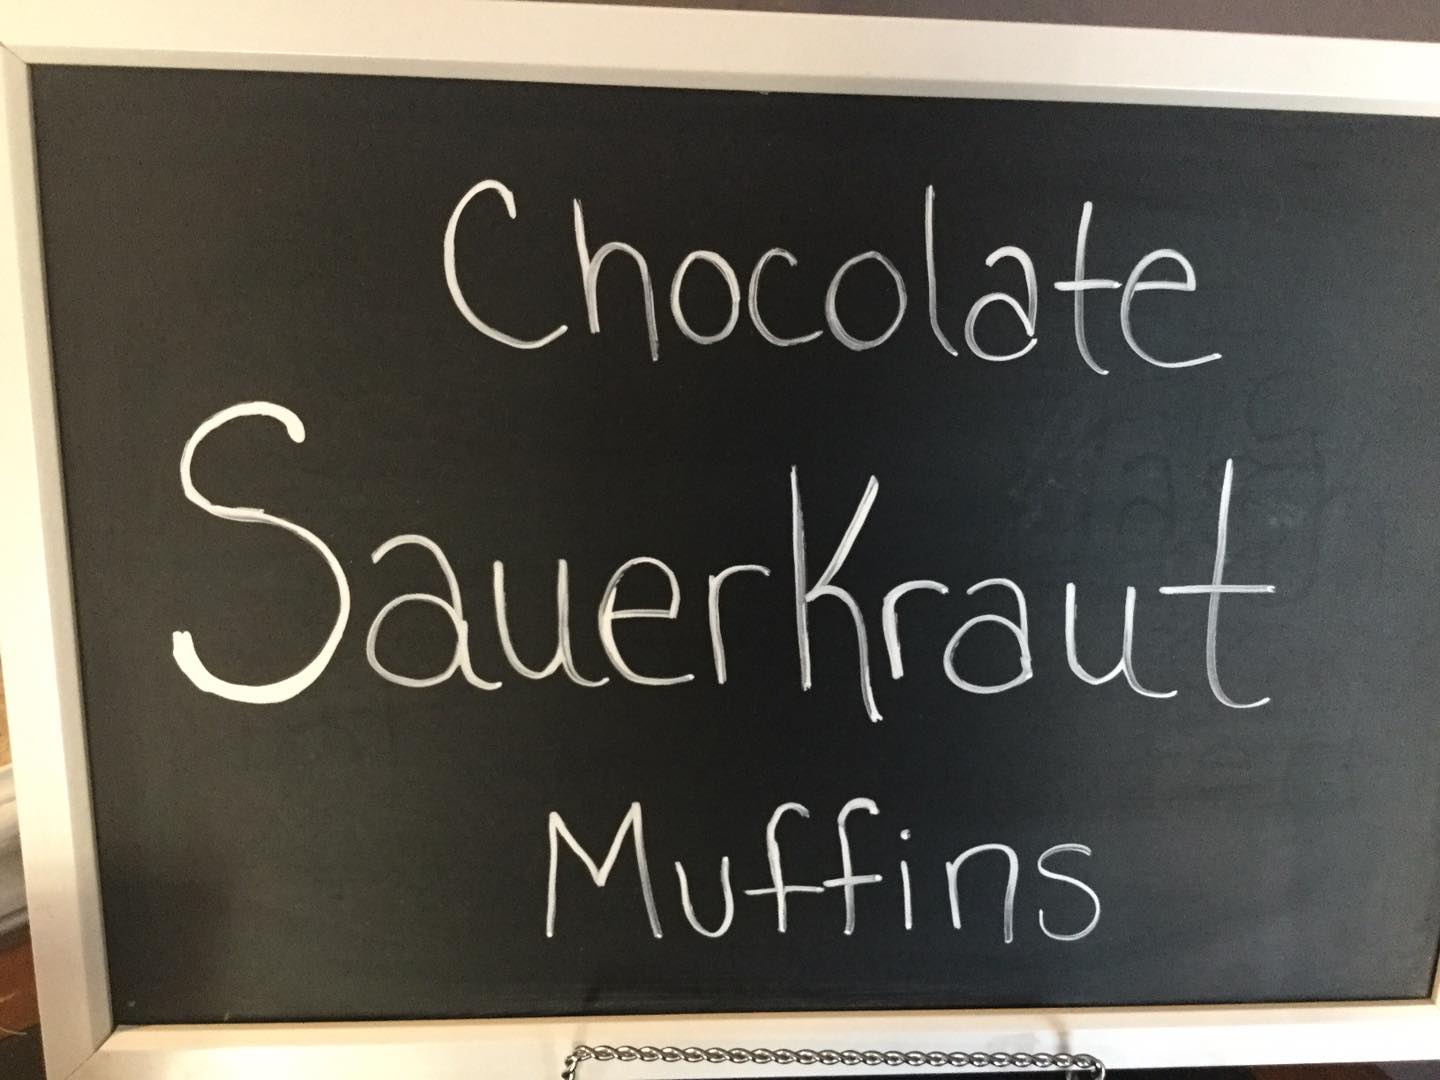 Chocolate
Sauerkraut
Muffins